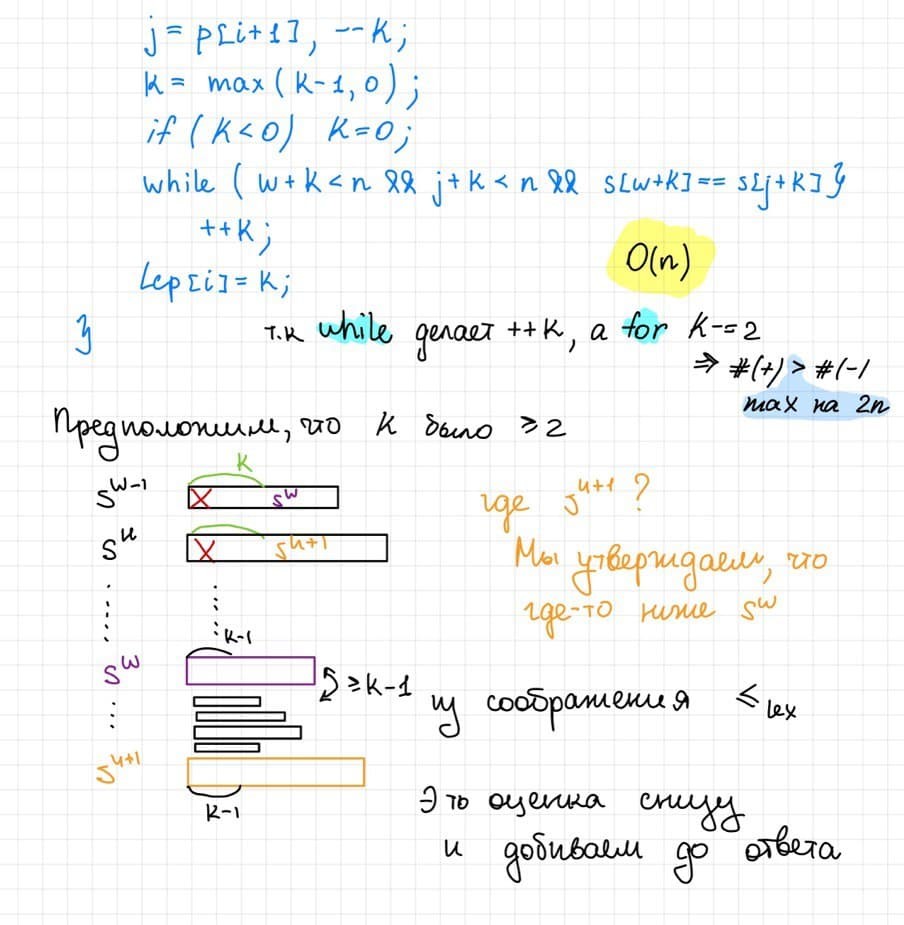 j = p[i+1], --k;
k = max(k-1, 0);
if (k<0) k=0;
while ( w+k<n && j+k<n && s[w+k]==s[j+k] }
++k;
lcp[i]=k;
}
O(n)
т.к while делает ++k, а for k-=2
⇒ #(+) > #(-)
max на 2n
Предположим, что k было ≥2
k
s^{w-1} X s^w
s^u X s^{u+1}
где s^{u+1} ?
Мы утверждаем, что
где-то ниже s^w
k-1
s^w ≥k-1
из соображения ≤_{lex}
s^{u+1}
k-1
Это оценка снизу
и добиваем до ответа